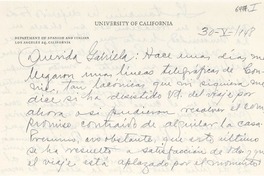 UNIVERSITY OF CALIFORNIA
30-V-1948
DEPARTMENT OF SPANISH AND ITALIAN
LOS ANGELES 24, CALIFORNIA
Querida Gabriela: Hace unos días me
llegaron unas líneas telegráficas de Con
suelo, tan lacónicas que ni siquiera me
dice si ha desistido Vd. del viaje por
ahora o si pudieron resolver el com
promiso contraido de alquilar la casa.
Presumo, no obstante que esto último
se ha resuelto a satisfacción de Vds. y que
el viaje está aplazado por el momento